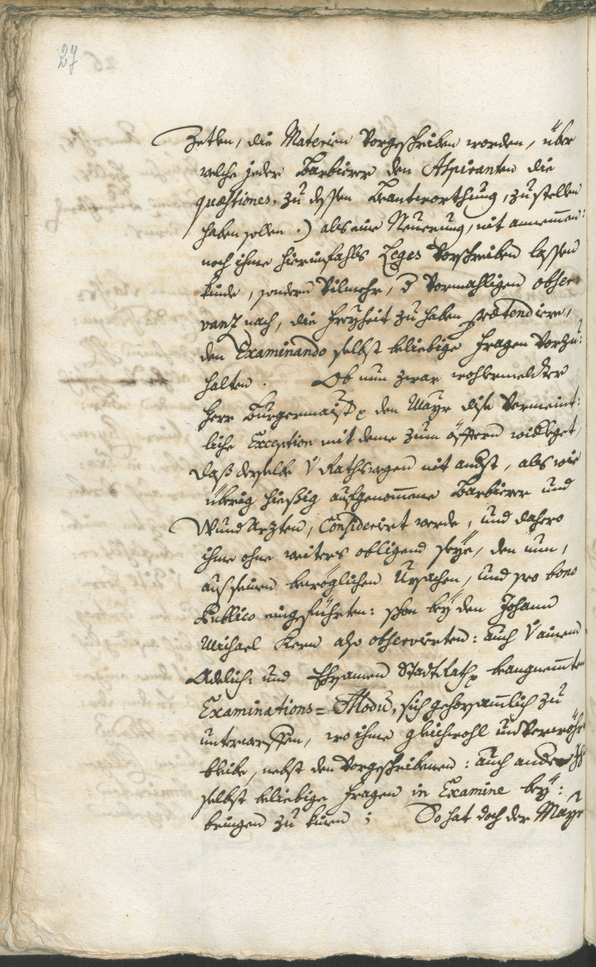 27
Zetlen, die Materien vorgeschriben worden, über
welche jeder Barbierer den Aspiranten die
quæstiones, zu dessen Beantworthung, zustellen
haben sollen :) als eine Neuerung, nit annemmen:
noch ihme hierinfahls Leges vorschreiben lassen
kunde, sondern vilmehr, d vormahligen obser-
vanz nach, die freyheit zu haben prætendiere,
den Examinando selbst beliebige fragen vorzu:
halten. Ob nun zwar wohlermeldter
Herr Burgermaistr den Mayr dise vermeint:
liche Exception mit deme zum öfftern widleget,
daß derselbe v Rathswegen nit andst, als wie
übrig hiesig aufgenommene Barbierer und
Wundärzten, Considerirt werde, und dahero
ihme ohne weiters obligend seye, den nun,
auß seinen bewöglichen Ursachen, und pro bono
Publico eingeführten: schon bey den Johann
Michael Kern also observirten: auch v ainem
Adelich: und Ehrsamen StadtRath beangnemmten
Examinations-Modū, sich gehorsammlich zu
unterwerffen, wo ihme gleichwohl und verwöhrt
bleibe, nebst den vorgeschribenen: auch andere
selbst beliebige fragen in Examine bey:
bringen zu kinen; So hat doch der Mayr